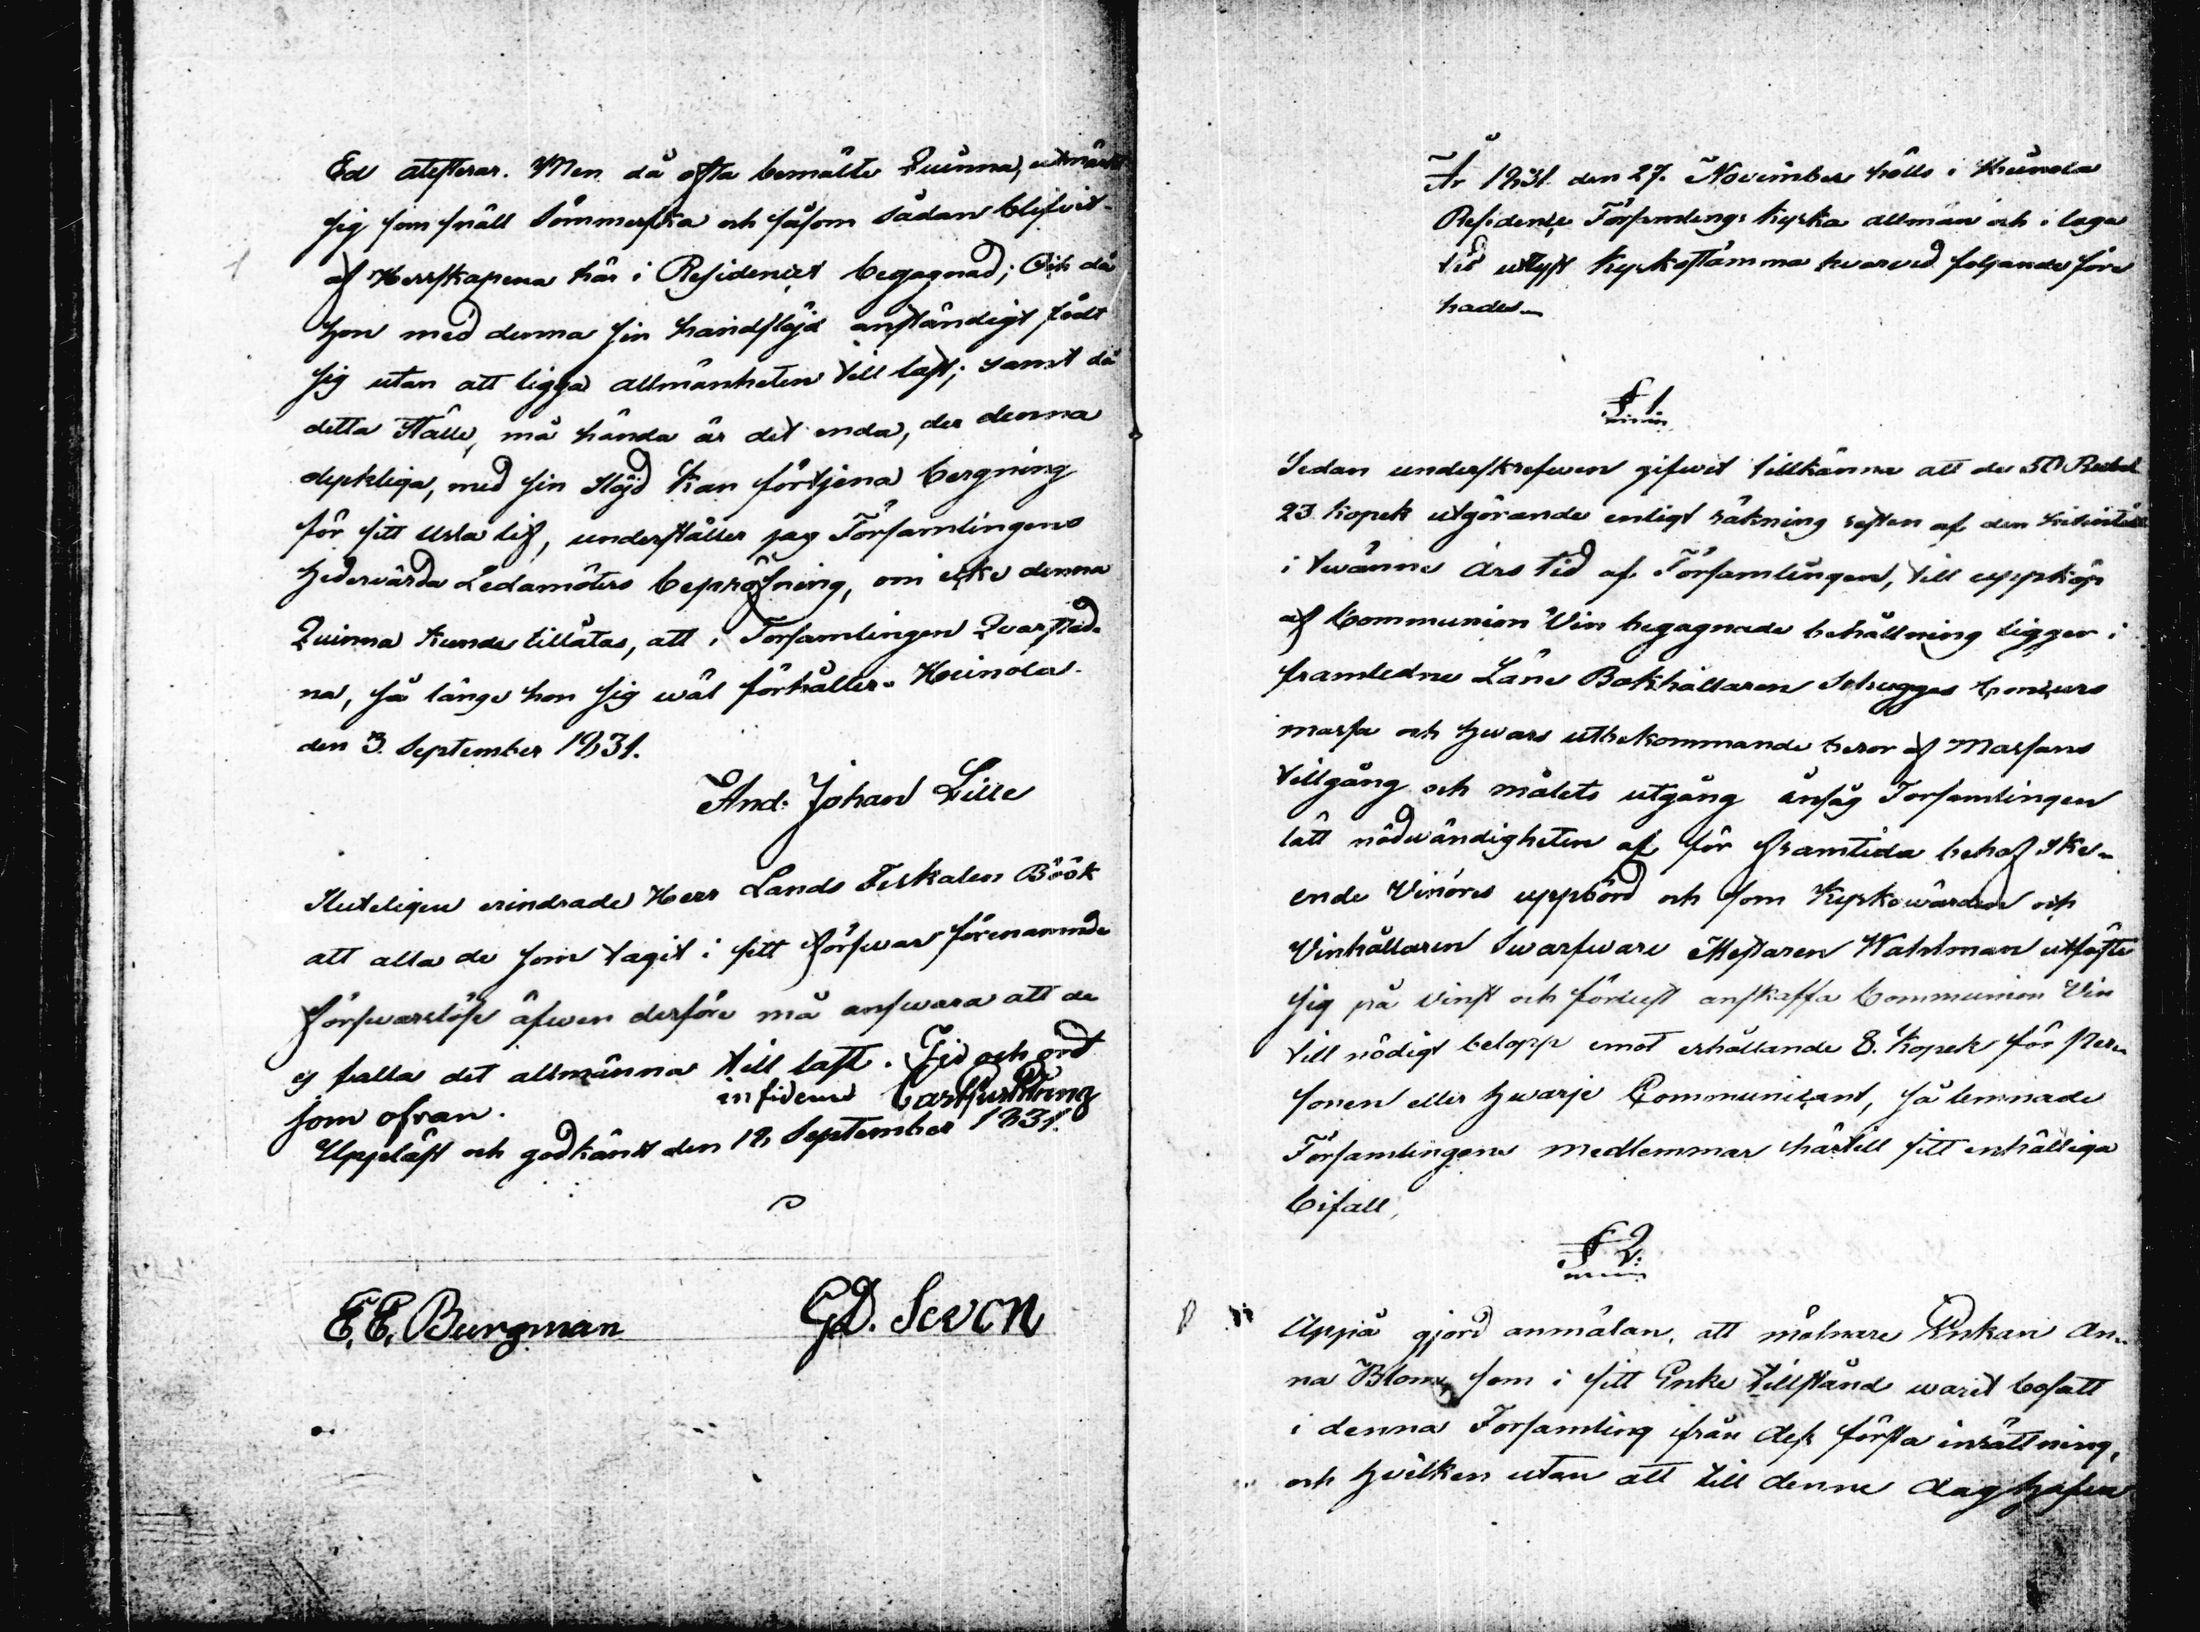 Ed attesterar. Men då ofta bemälte Quinna, utmärkt
sig som snäll Sömmerska och såsom sådan blifvit
af Herrskaperna här i Residencet begagnad; Och då
hon med denna sin handslöjd anständigt födt
sig utan att ligga allmänheten till last; samt då
detta Ställe, må hända är det enda, der denna
olyckliga, med sin slöjd kan förtjena bergning
för sitt usla lif, underställer jag Församlingens
hedervärda Ledamöters bepröfning, om icke denna
Quinna kunde tillåtas, att i Församlingen Quarstad-
na, så länge hon sig wäl förhåller. Heinola
den 3. September 1831.
And. Johan Lille
Sluteligen erindrade Herr Lands Fiskalen Böök
att alla de som tagit i sitt försvar förenämnde
försvarslöse äfwen derföre må answara att de
ej falla det allmänna till last. Tid och ord
som ofvan.
in fidem
Uppläst och godkändt den 18 September 1831.
E. E. Burgman G.D. Sevon
År 1831 den 27. November hölls i Heinola
Residence Församlings kyrka allmän och i laga
tid utlyst kyrkostämma hvarvid följande före
hades
§ 1
Sedan underskrefwen gifwit tillkänna att de 50 Rubel
23 kopek utgörande enligt räkning resten af den
i twänne års tid af Församlingen, till uppköp
af Communion Vin begagnade behållning ligger i
framledne Läns Bokhållaren Schugges Concurs
massa och hvars utbekommande beror af Massans
tillgång och målets utgång ansåg Församlingen
lätt nödwändigheten af för framtida behof ske-
ende Vinöres uppbörd och som Kyrkowärden och
Vinhållaren Swarfware Mästaren Wahlman utfäste
sig på vinst och förlust anskaffa Communion Vin
till nödigt belopp emot erhållande 8. Kopek för Per-
sonen eller hwarje Communicant, så lemnade
Församlingens medlemmar härtill sitt enhälliga
bifall,
§ 2.
Uppå gjord anmälan, att målnare Enkan An-
na Blom, som i sitt Enke tillstånd warit bosatt
i denna Församling ifrån dess första inrättning,
och hwilken utan att till denne dag hafwa